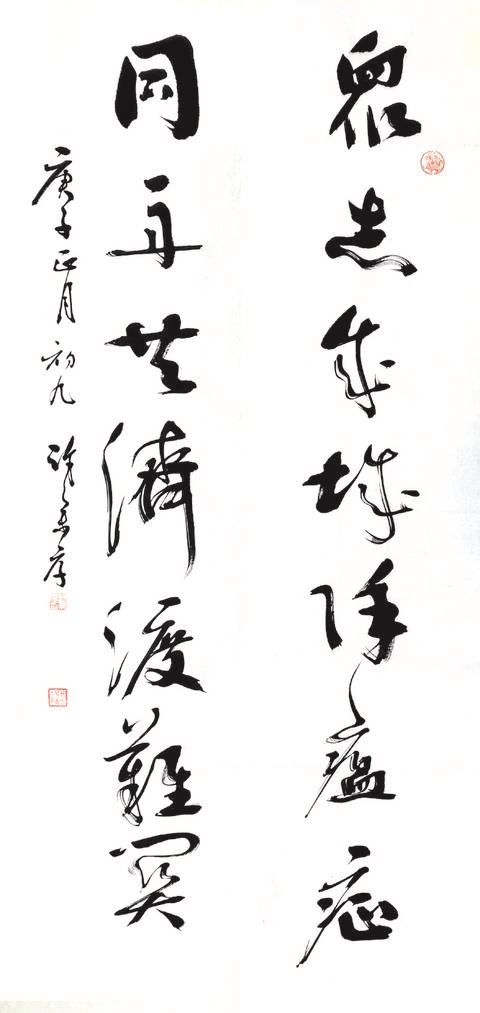 衆志成城降瘟症
同舟共濟渡難關
庚子正月初九 許